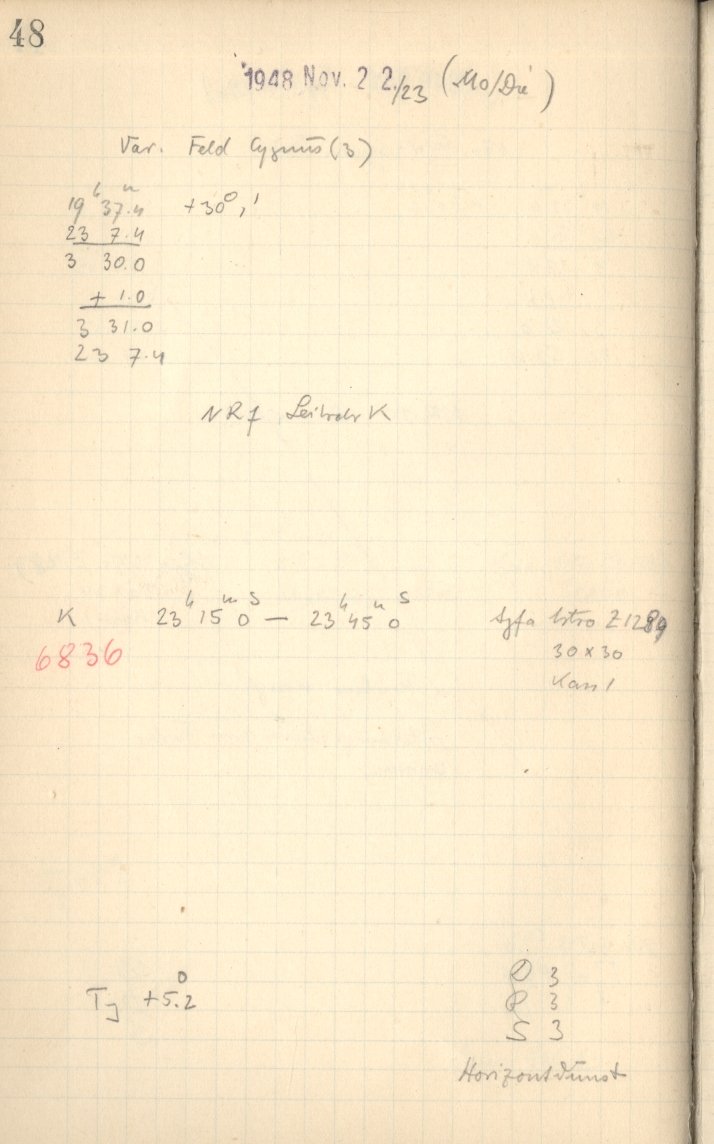 48
1948 Nov. 22./23 (Mo/Die)
Var. Feld Cygnus (3)
19h 37m.4 +30°,1
23 7.4
3 30.0
+ 1.0
3 31.0
23 7.4
NRf Leitrohr K
K 23h 15m 0s — 23h 45m 0s Agfa Astro Z1289
6836 30×30
Kass 1
+5.2°
D 3
R 3
S 3
Horizontdunst